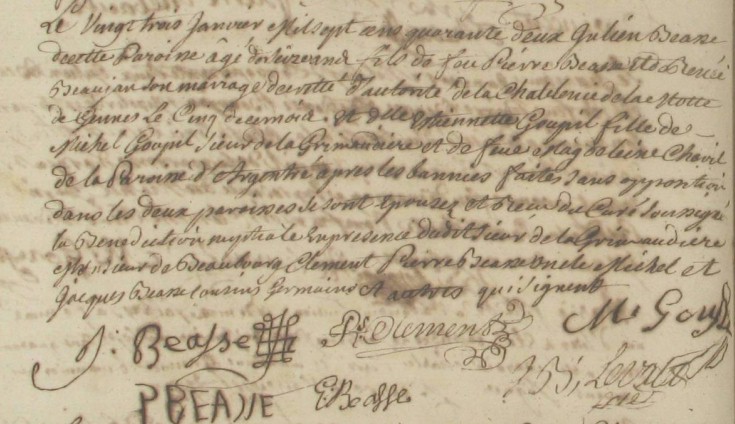 Le Vingt trois Janvier Mil sept cens quarante deux Julien Beasse
de cette Paroisse âgé de seize ans fils de feu Pierre Beasse et de Renée
Beaujan son mariage decreté d'autorité de la Chatelenie de la Motte
de Gennes Le Cinq de ce mois. Et dlle Etiennette Goupil fille de
Michel Goupil Sieur de la Grimaudiere et de feue Magdeleine
de la Paroisse d'Argentré apres les bannies faites sans opposition
dans les deux paroisses se sont epousez et receu du Curé soussigné
la Benediction nuptiale En presence dudit Sieur de la Grimaudiere
Sieur de Beaubourg Clement Pierre Beasse oncle Michel et
Jacques Beasse cousins Germains et autres qui signent
J: Beasse P. Clement M. Goupil
P BEASSE Beasse